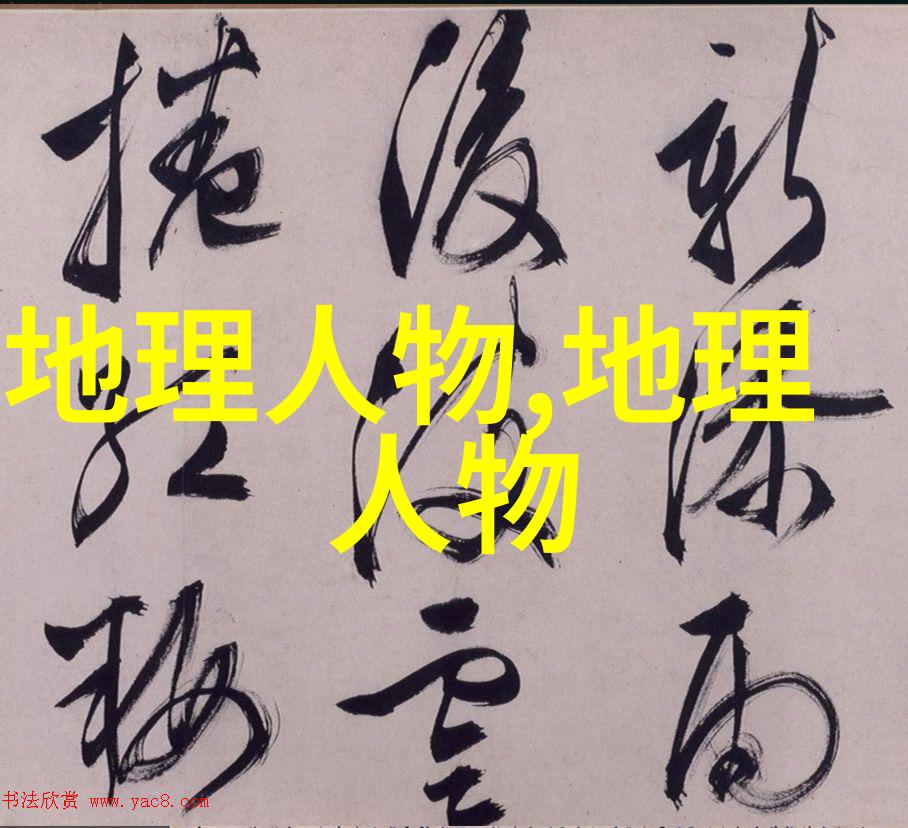 新雨
後雲
捲
地理人物,地理
人物
书法欣赏 www.yac8.com